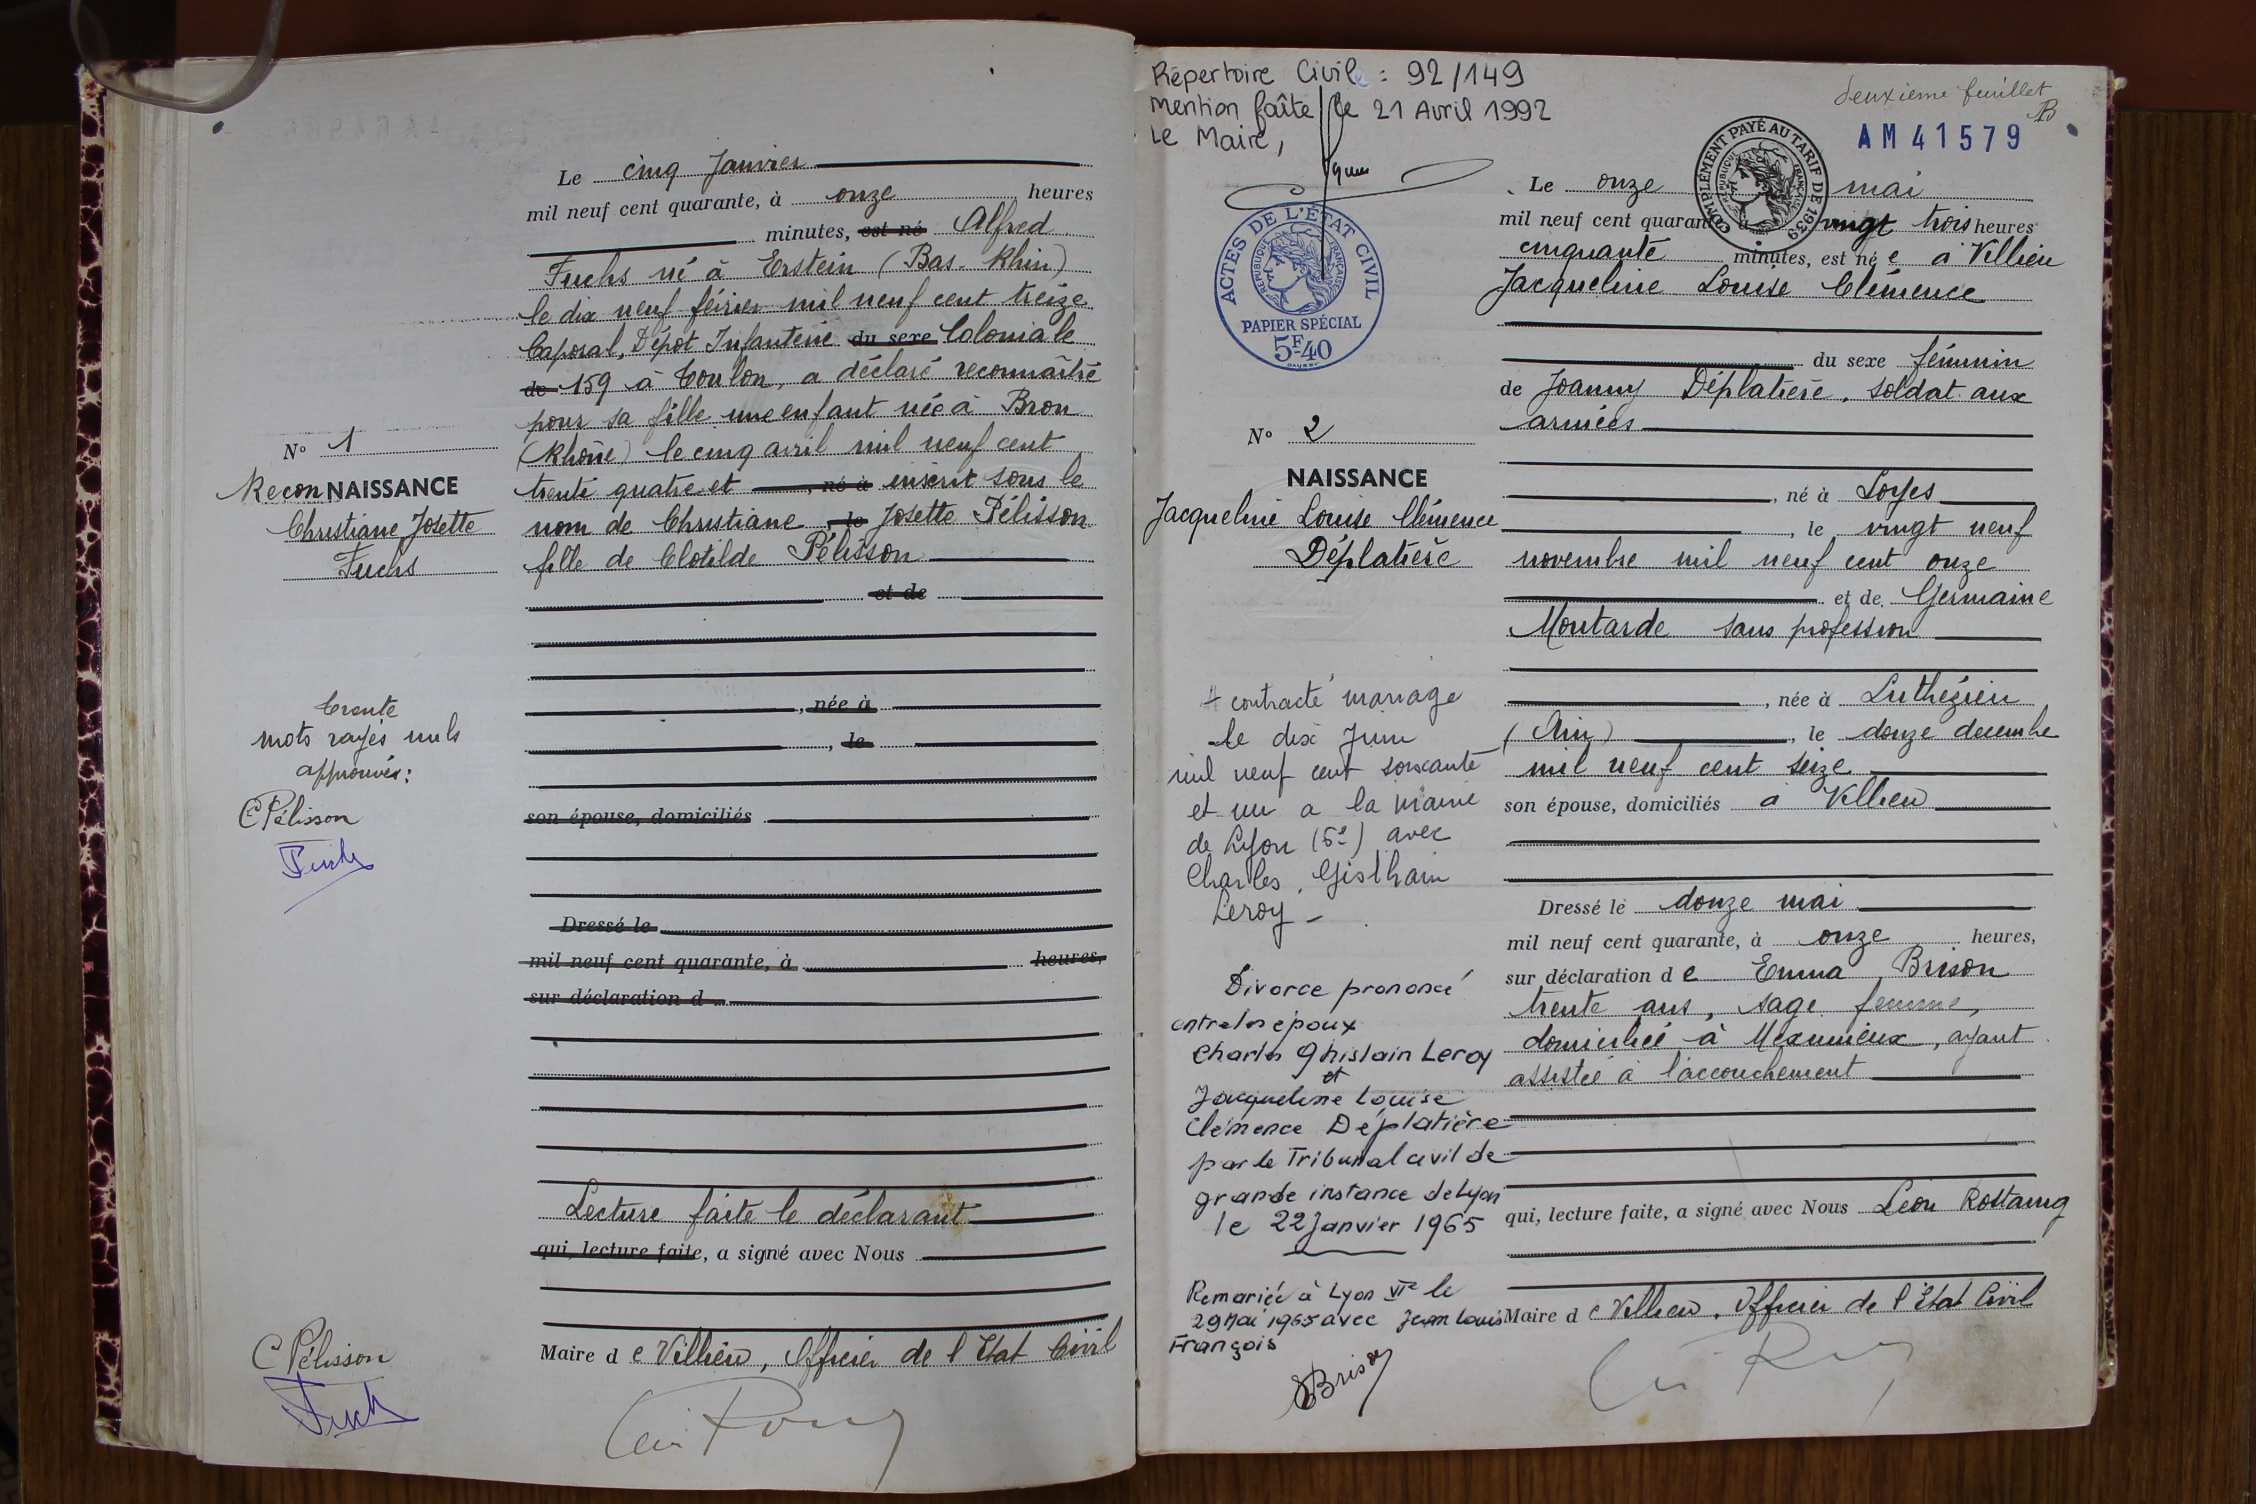 Le cinq Janvier
mil neuf cent quarante, à onze heures
minutes, est né Alfred
Fuchs né à Erstein (Bas-Rhin)
le dix neuf février mil neuf cent treize
Caporal, Dépot Infanterie du sexe Coloniale
de 159 à Toulon, a déclaré reconnaître
pour sa fille une enfant née à Bron
(Rhône) le cinq avril mil neuf cent
trente quatre et , né à inscrit sous le
nom de Christiane , le Josette Pélisson
fille de Clotilde Pélisson
et de
, née à
, le
son épouse, domiciliés
Dressé le
mil neuf cent quarante, à heures,
sur déclaration d
Lecture faite le déclarant
qui, lecture faite, a signé avec Nous
Maire d e Villieu, Officier de l'Etat Civil
N° 1
ReconNAISSANCE
Christiane Josette
Fuchs
trente
mots rayés nuls
approuvés:
C Pélisson
Fuchs
C Pélisson
Fuchs
Répertoire Civil : 92/149
Mention faîte le 21 Avril 1992
Le Maire,
deuxième feuillet
AM 41579
COMPLÉMENT PAYÉ AU TARIF DE 1939
RÉPUBLIQUE FRANÇAISE
ACTES DE L'ÉTAT CIVIL
RÉPUBLIQUE FRANÇAISE
PAPIER SPÉCIAL
5F-40
N° 2
NAISSANCE
Jacqueline Louise Clémence
Déplatière
A contracté mariage
le dix Juin
mil neuf cent soixante
et un à la mairie
de Lyon (6e) avec
Charles, Gislhain
Leroy -
Divorce prononcé
entre les époux
Charles Ghislain Leroy
et
Jacqueline Louise
Clémence Déplatière
par le Tribunal civil de
grande instance de Lyon
le 22 Janvier 1965
Remariée à Lyon VIe le
29 Mai 1965 avec Jean Louis
François
EBrison
Le onze mai
mil neuf cent quarante à vingt trois heures
cinquante minutes, est né e à Villieu
Jacqueline Louise Clémence
du sexe féminin
de Joanny Déplatière, soldat aux
armées
, né à Loyes
, le vingt neuf
novembre mil neuf cent onze
et de Germaine
Moutarde sans profession
, née à Luthézieu
(Ain) , le douze décembre
mil neuf cent seize
son épouse, domiciliés à Villieu
Dressé le douze mai
mil neuf cent quarante, à onze heures,
sur déclaration d e Emma Brison
trente ans, sage femme,
domiciliée à Meximieux, ayant
assistée à l'accouchement
qui, lecture faite, a signé avec Nous Léon Rostaing
Maire d e Villieu, Officier de l'Etat Civil